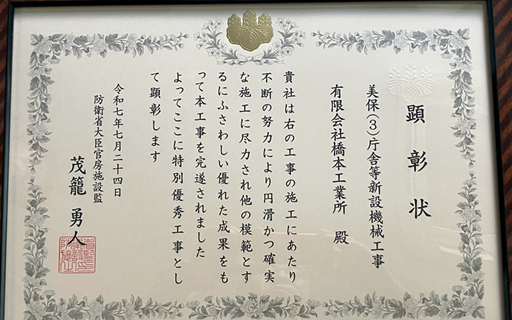 顕彰状
美保(3)庁舎等新設機械工事
有限会社橋本工業所 殿
貴社は右の工事の施工にあたり
不断の努力により円滑かつ確実
な施工に尽力され他の模範とす
るにふさわしい優れた成果をも
って本工事を完遂されました
よってここに特別優秀工事とし
て顕彰します
令和七年七月二十四日
防衛省大臣官房施設監
茂籠 勇人